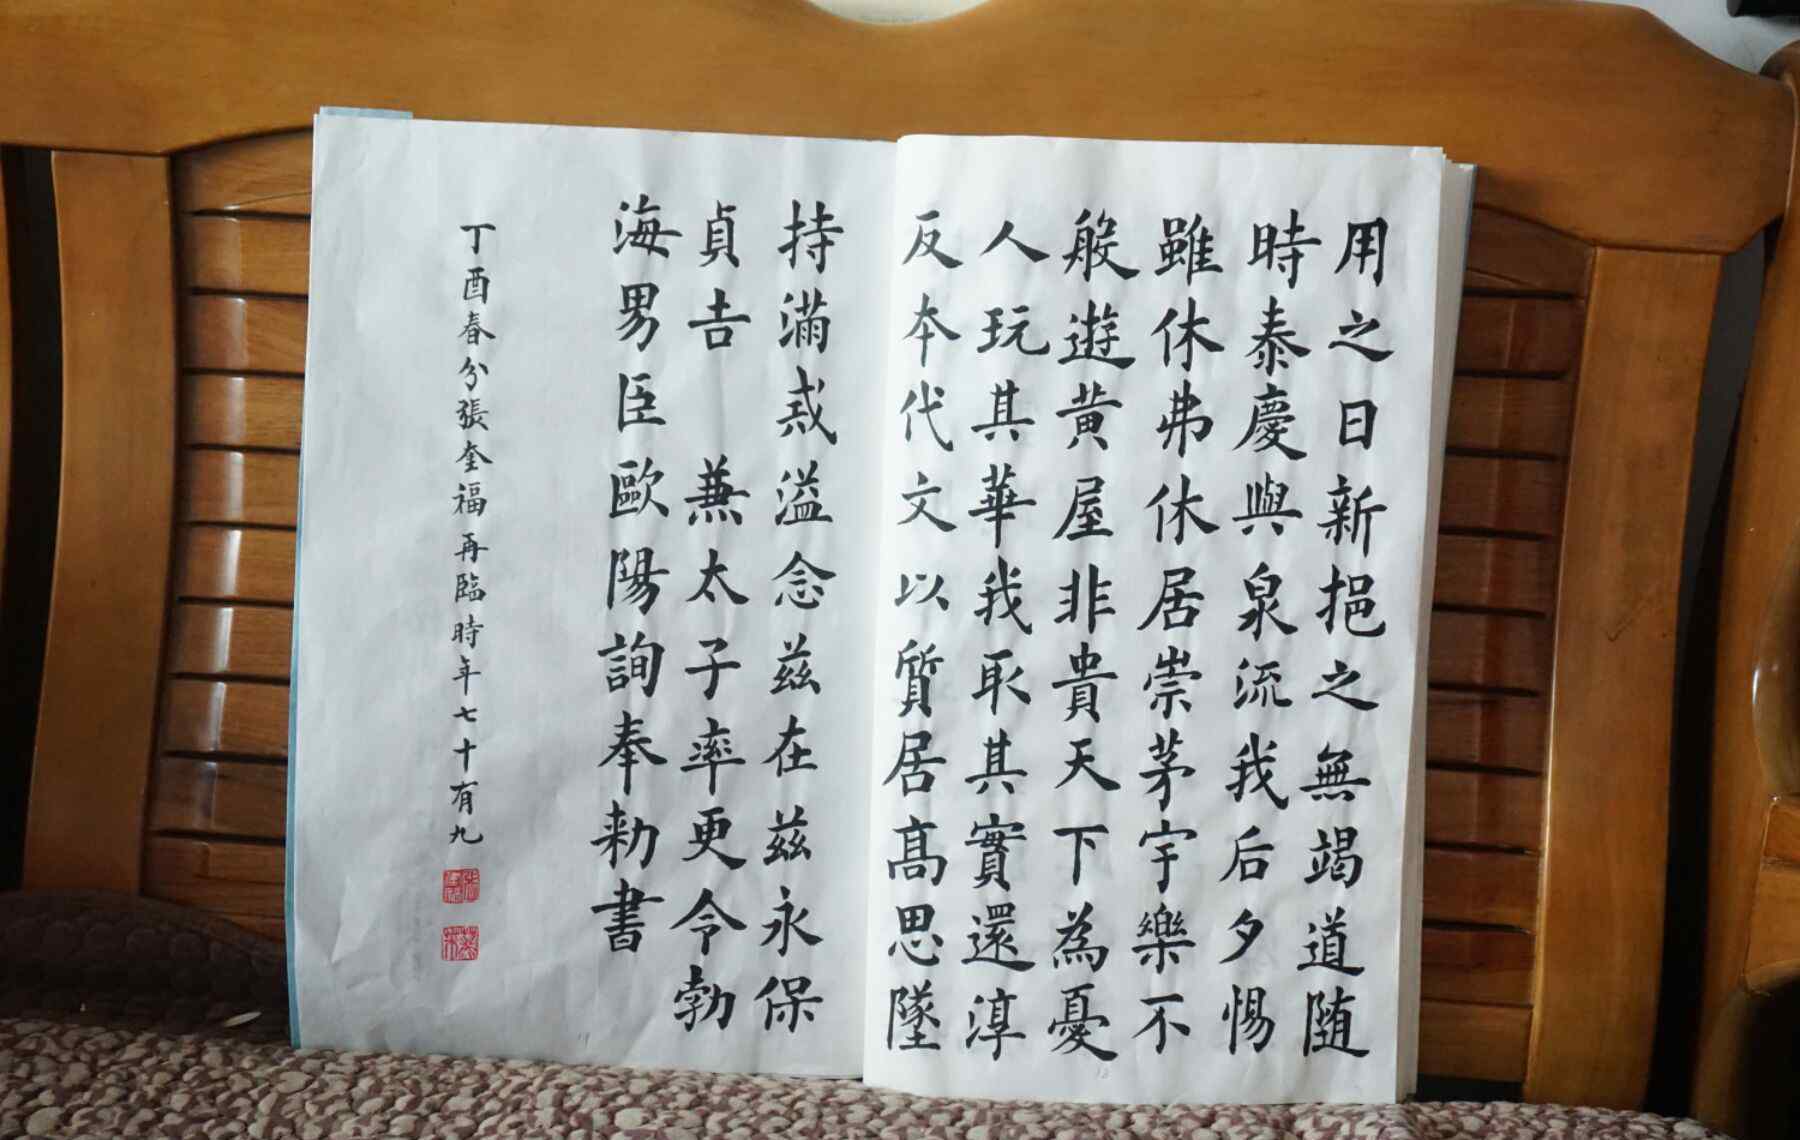 用之日新挹之無竭道随
時泰慶與泉流我后夕惕
雖休弗休居崇茅宇樂不
般遊黄屋非貴天下為憂
人玩其華我取其實還淳
反本代文以質居髙思墜
持滿戒溢念茲在茲永保
貞吉 兼太子率更令勃
海男臣歐陽詢奉勅書
丁酉春分張奎福再臨時年七十有九